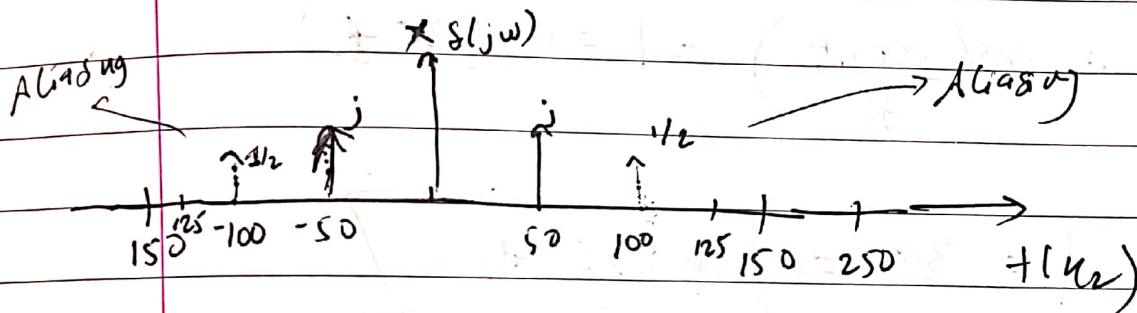 X δ(jw)
Aliasing
Aliasing
j
j
1/2
1/2
150 125 -100 -50 50 100 125 150 250
f(Hz)